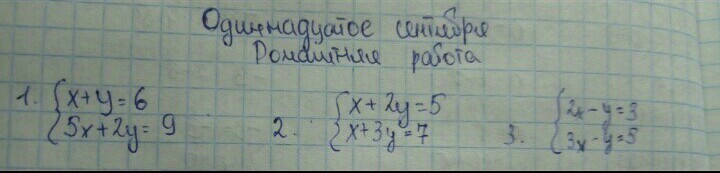 Одиннадцатое сентября
Домашняя работа
1. { x+y=6
5x+2y=9
2. { x+2y=5
x+3y=7
3. { 2x-y=3
3x-y=5